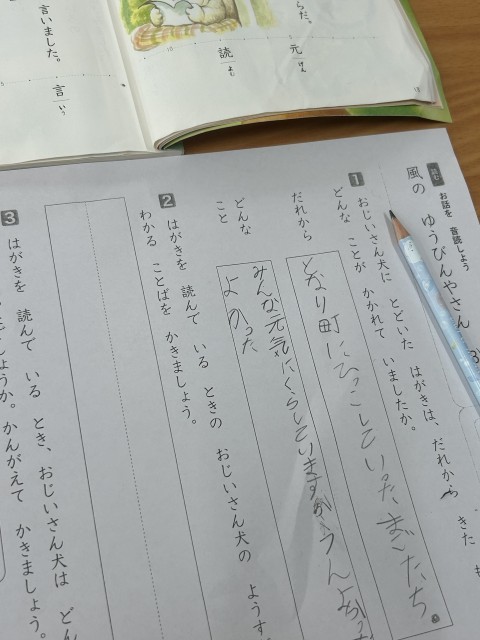 言いました。
言
いう
らだ。
元
げん
読
よむ
読む
お話を 音読しよう
風の ゆうびんやさん
1
おじいさん犬に とどいた はがきは、だれから きた
どんな ことが かかれて いましたか。
だれから
となり町にひっこしていったまごたち。
どんな
こと
みんな元気にくらしていますか
よかった
2
はがきを 読んで いる ときの おじいさん犬の ようす
わかる ことばを かきましょう。
3
はがきを 読んで いる とき、おじいさん犬は どん
しょうか。かんがえて かきましょう。